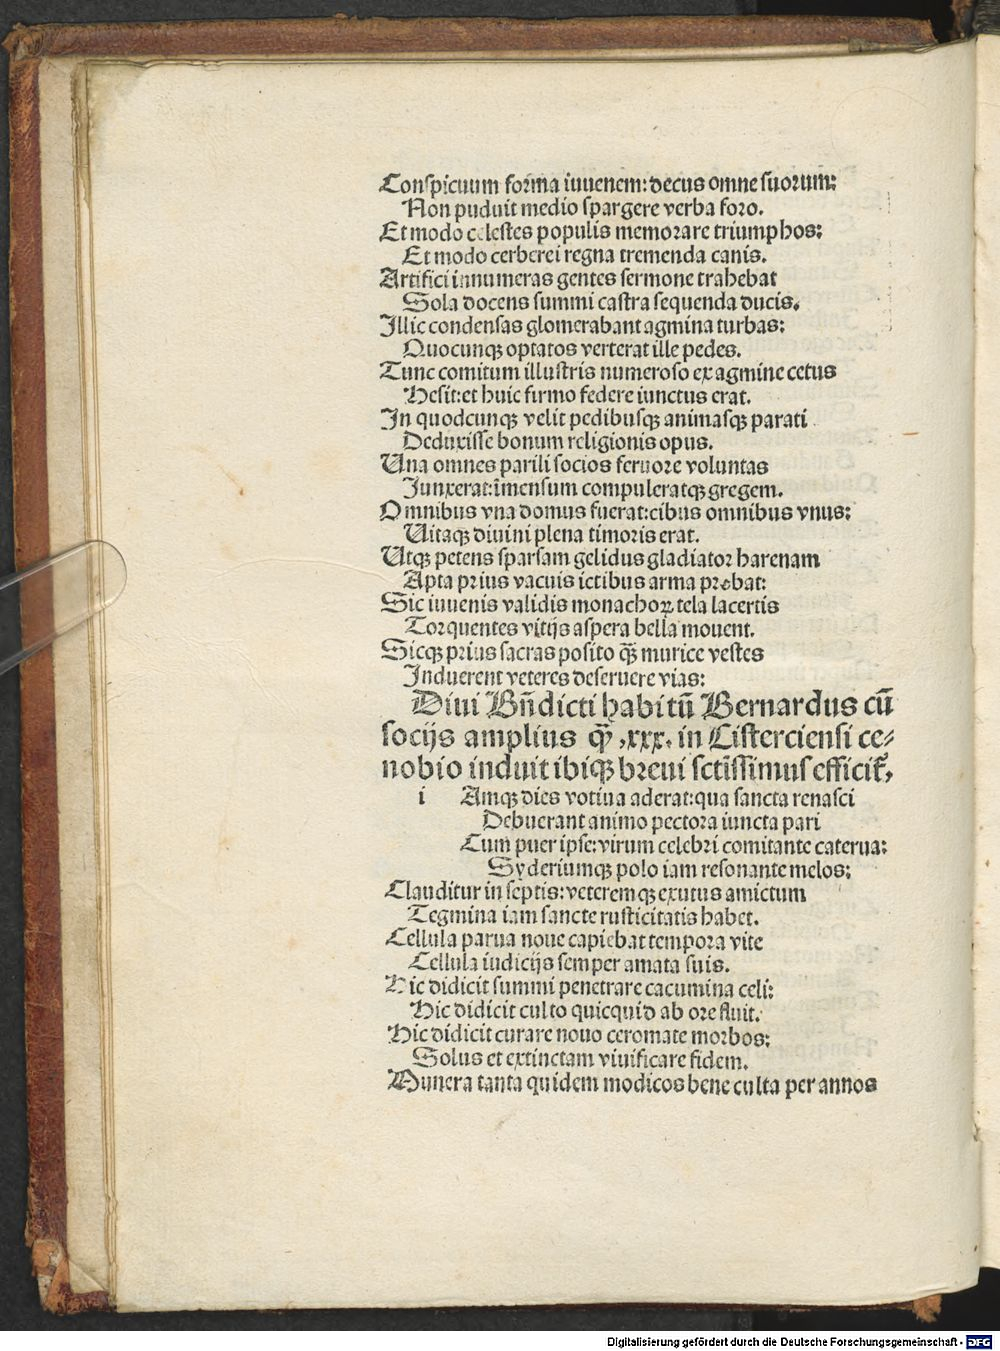 Conspicuum forma iuuenem: decus omne suorum:
Non puduit medio spargere verba foro.
Et modo celestes populis memorare triumphos:
Et modo cerberei regna tremenda canis.
Artifici innumeras gentes sermone trahebat
Sola docens summi castra sequenda ducis.
Illic condensas glomerabant agmina turbas:
Quocunqꝫ optatos verterat ille pedes.
Tunc comitum illustris numeroso ex agmine cetus
Hesit: et huic firmo federe iunctus erat.
In quodcunqꝫ velit pedibusqꝫ animasqꝫ parati
Deduxisse bonum religionis opus.
Una omnes parili socios feruore voluntas
Junxerat: īmensum compuleratqꝫ gregem.
Omnibus vna domus fuerat: cibus omnibus vnus:
Uitaqꝫ diuini plena timoris erat.
Utqꝫ petens sparsam gelidus gladiator harenam
Apta prius vacuis ictibus arma probat:
Sic iuuenis validis monachoꝝ tela lacertis
Torquentes vitijs aspera bella mouent.
Sicqꝫ prius sacras posito qꝫ̄ murice vestes
Induerent veteres deseruere vias:
Diui Bn̄dicti habitū Bernardus cū
socijs amplius qꝫ̄ .xxx. in Cisterciensi ce⸗
nobio induit ibiqꝫ breui sctīssimus efficit᷑,
i Amqꝫ dies votiua aderat: qua sancta renasci
Debuerant animo pectora iuncta pari
Cum puer ipse: virum celebri comitante caterua:
Syderiumqꝫ polo iam resonante melos:
Clauditur in septis: veteremqꝫ exutus amictum
Tegmina iam sancte rusticitatis habet.
Cellula parua noue capiebat tempora vite
Cellula iudicijs semper amata suis.
Hic didicit summi penetrare cacumina celi:
Hic didicit culto quicquid ab ore fluit.
Hic didicit curare nouo ceromate morbos:
Solus et extinctam viuificare fidem.
Munera tanta quidem modicos bene culta per annos
Digitalisierung gefördert durch die Deutsche Forschungsgemeinschaft - DFG